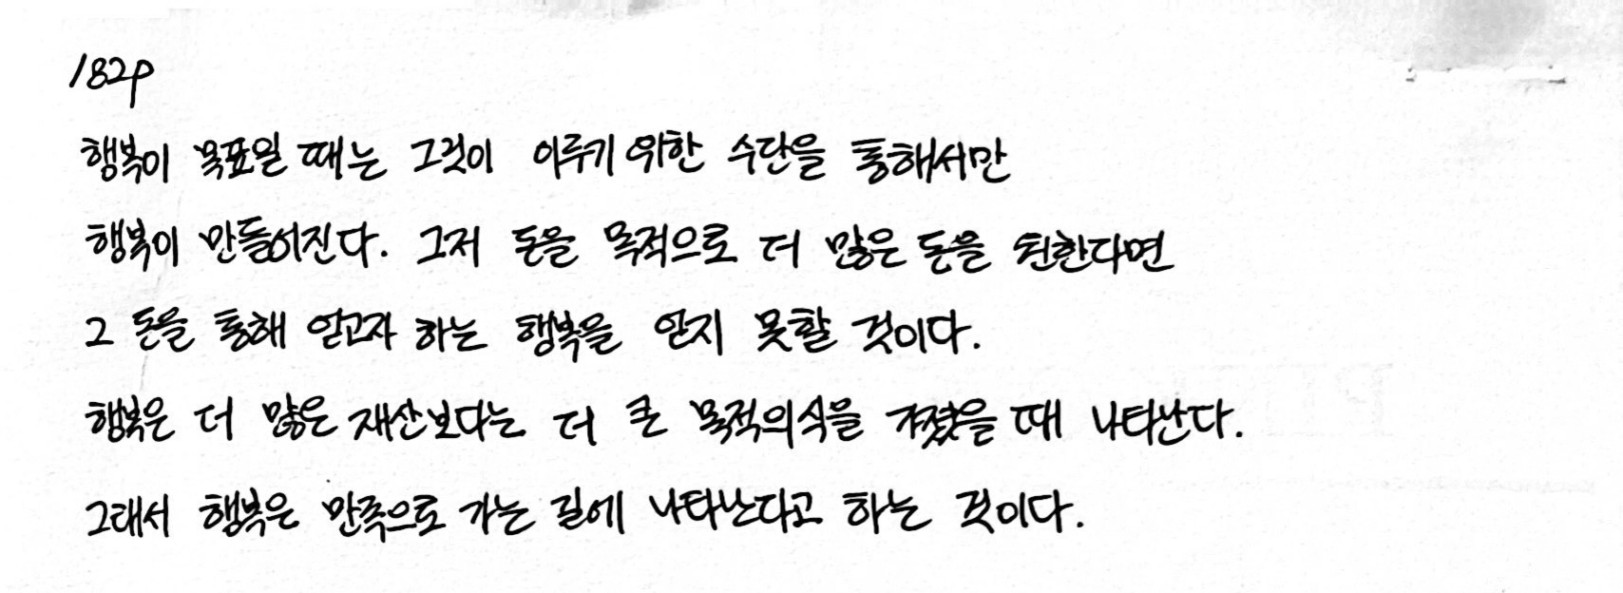 182p
행복이 목표일 때는 그것이 이루기 위한 수단을 통해서만
행복이 만들어진다. 그저 돈을 목적으로 더 많은 돈을 원한다면
그 돈을 통해 얻고자 하는 행복을 얻지 못할 것이다.
행복은 더 많은 재산보다는 더 큰 목적의식을 가졌을 때 나타난다.
그래서 행복은 만족으로 가는 길에 나타난다고 하는 것이다.